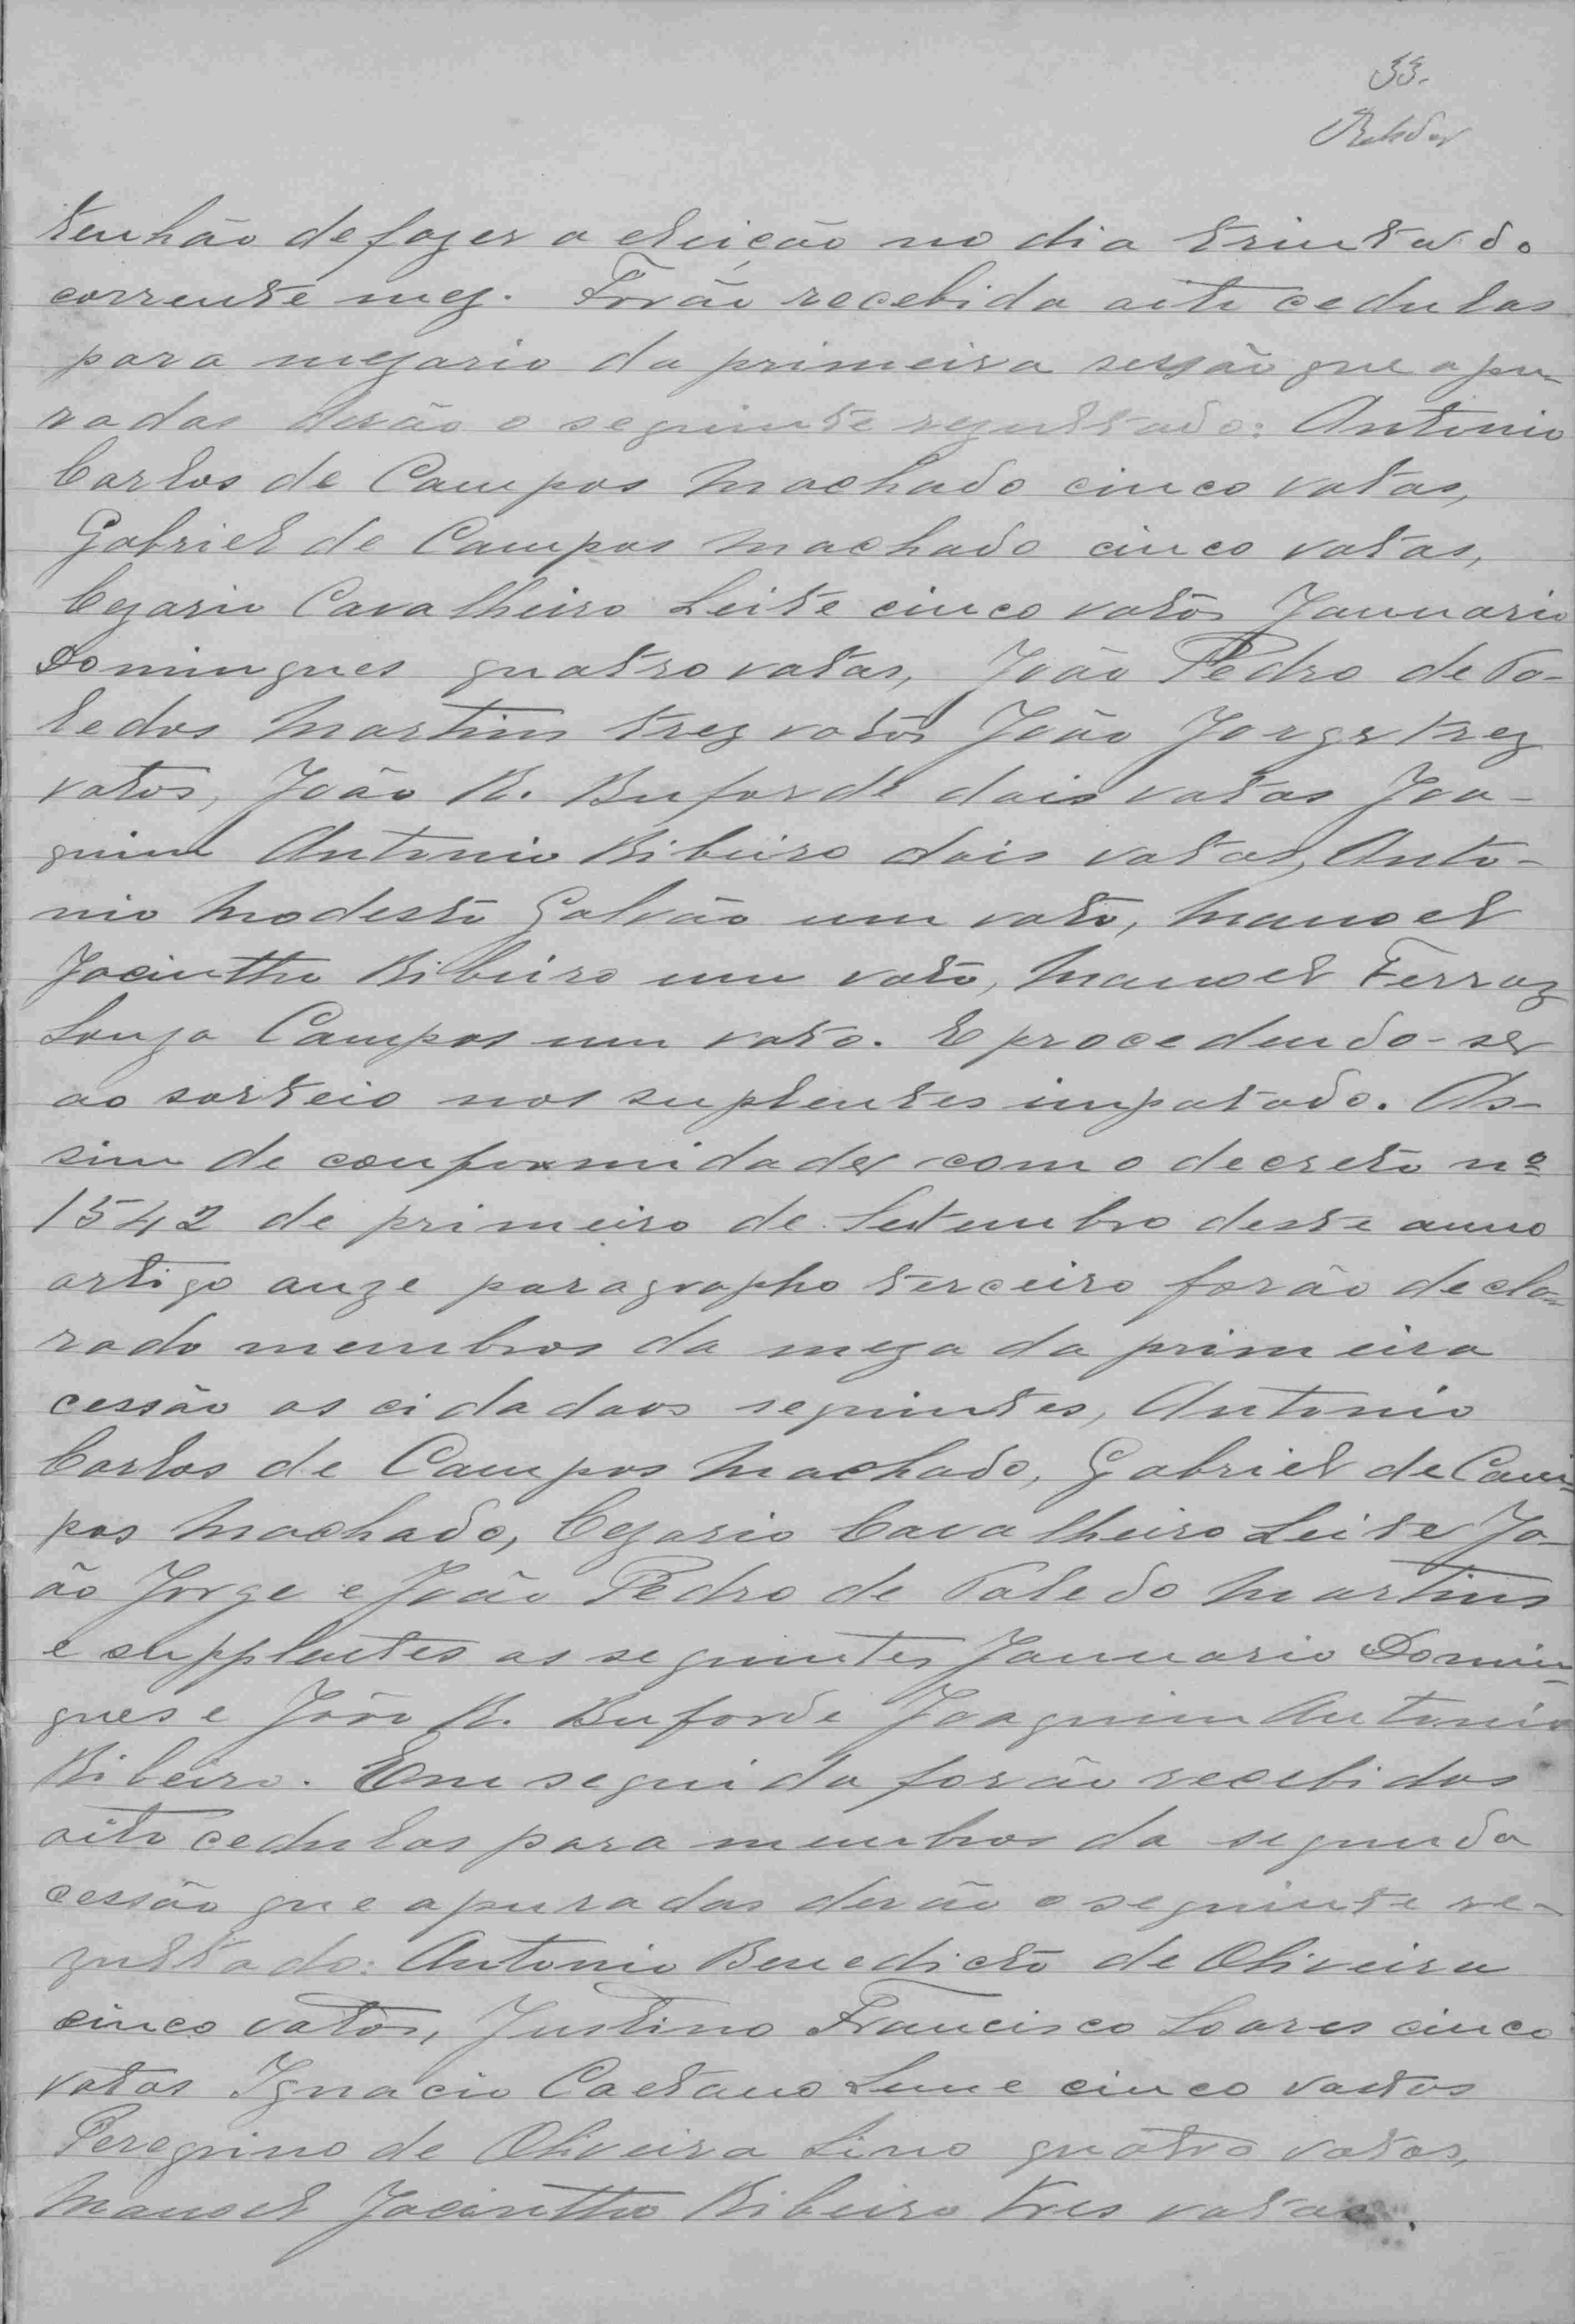 33.
Rehder
tenhão de fazer a eleição no dia trinta do
corrente mez. Forão recebida oito cedulas
para mezario da primeira sessão que apu-
radas derão o seguinte rezultado: Antonio
Carlos de Campos Machado cinco votos,
Gabriel de Campos Machado cinco votos,
Cezario Cavalheiro Leite cinco votos Januario
Domingues quatro votos, João Pedro de To-
ledos Martins trez votos João Jorge trez
votos, João R. Buforde dois votos Joa-
quim Antonio Ribeiro dois votos, Anto-
nio Modesto Galvão um voto, Manoel
Jacintho Ribeiro um voto, Manoel Ferraz
Souza Campos um voto. E procedendo-se
ao sorteio nos suplentes impatado. As-
sim de conformidade com o decreto nº
1542 de primeiro de Setembro deste anno
artigo onze paragrapho terceiro forão decla-
rado membros da meza da primeira
cessão os cidadaos seguintes, Antonio
Carlos de Campos Machado, Gabriel de Cam-
pos Machado, Cezario Cavalheiro Leite Jo-
ão Jorge e João Pedro de Toledo Martins
e supplentes os seguintes Januario Domin-
gues e João R. Buforde Joaquim Antonio
Ribeiro. Em seguida forão recebidos
oito cedulas para membros da segunda
cessão que apuradas derão o seguinte re-
zultado: Antonio Benedicto de Oliveira
cinco votos, Justino Francisco Soares cinco
votos Ignacio Caetano Leme cinco vootos
Peregrino de Oliveira Lino quatro votos,
Manoel Jacintho Ribeiro tres votos.